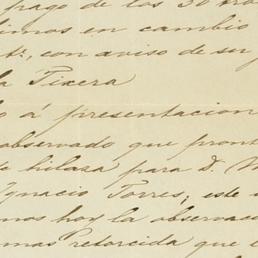 pago de los 30
timos en cambio
con aviso de su
la Tixera
lo á presentacion
observado que pront
hilaza para D.
Ignacio Torres, este
mos hoy la observac
mas retorcida que